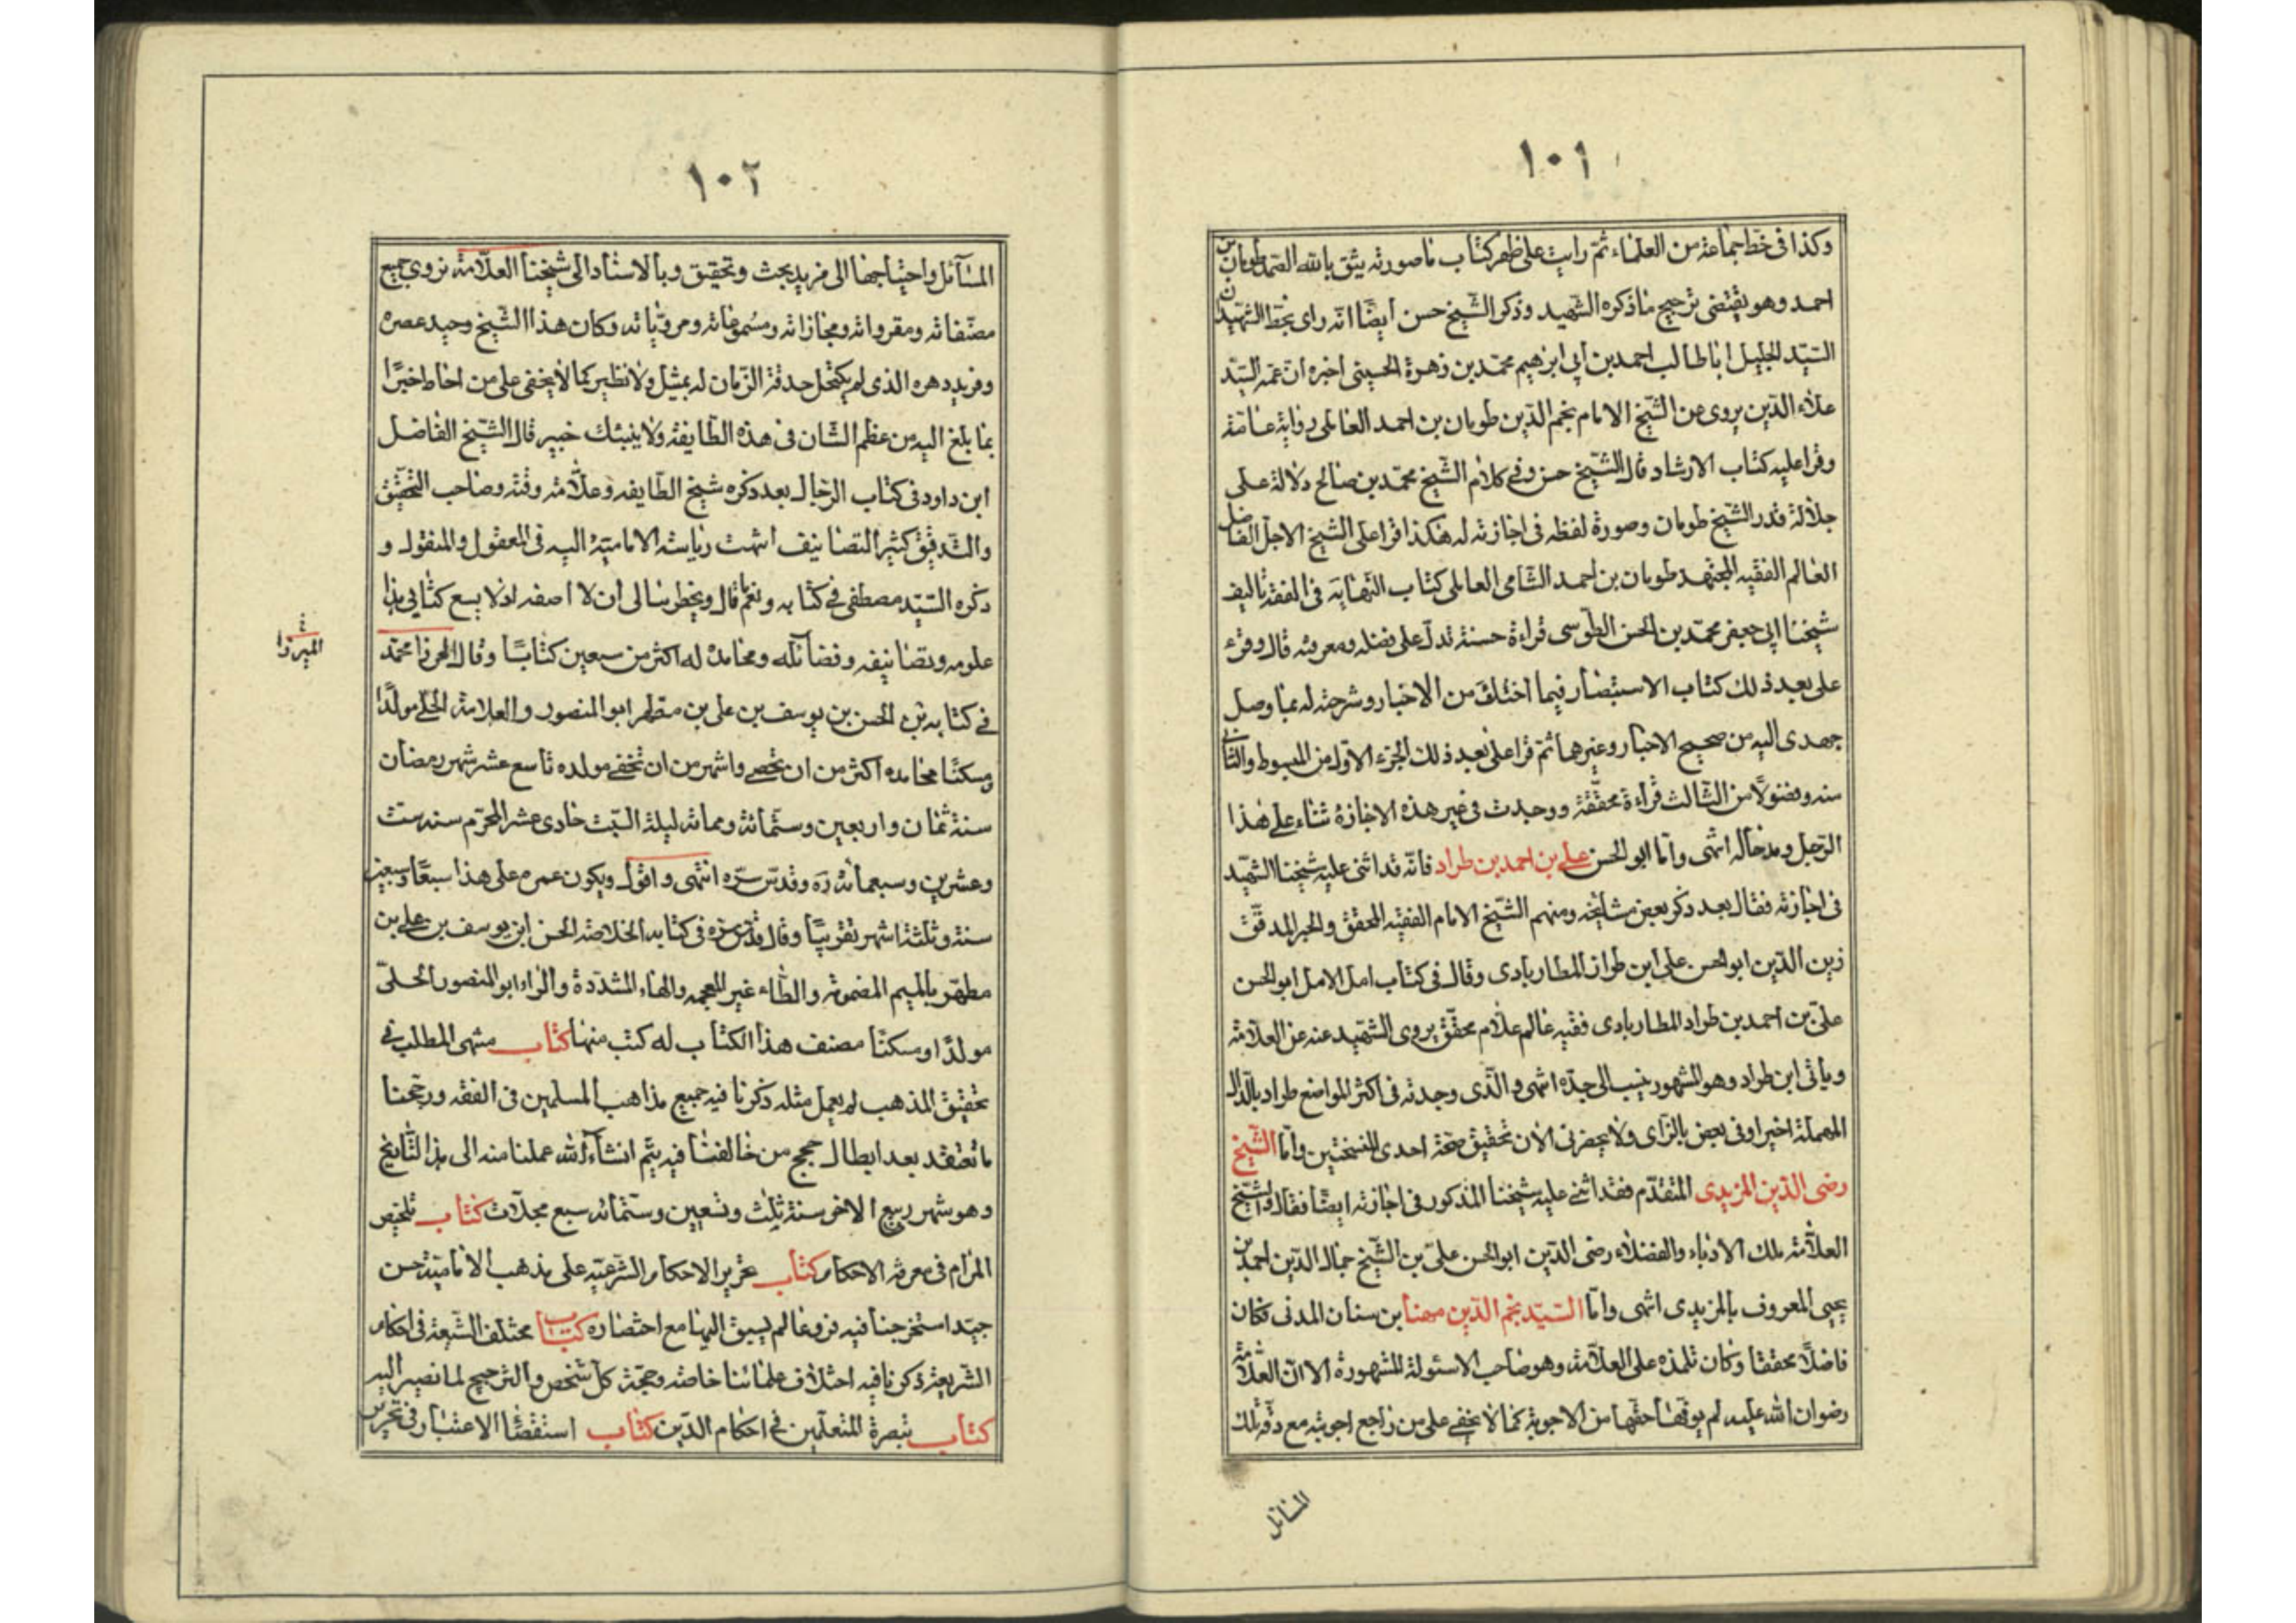 ١٠١
وكذا في خط جماعة من العلماء ثم رايت على ظهر كتاب ما صورته يثق بالله الصمد طومان بن
احمد وهو يقتضي ترجيح ما ذكره الشهيد وذكر الشيخ حسن ايضا انه راى بخط الشهيد ان
السيد الجليل ابا طالب احمد بن ابي ابرهيم محمد بن زهرة الحسيني اخبره ان عمه السيد
علاء الدين يروى عن الشيخ الامام نجم الدين طومان بن احمد العاملي رواية عامة
وقرا عليه كتاب الارشاد قال الشيخ حسن وفي كلام الشيخ محمد بن صالح دلالة على
جلالة قدر الشيخ طومان وصورة لفظه في اجازته له هكذا قرا على الشيخ الاجل الفاضل
العالم الفقيه المجتهد طومان بن احمد الشامي العاملي كتاب النهاية في الفقه تاليف
شيخنا ابي جعفر محمد بن الحسن الطوسي قراءة حسنة تدل على فضله ومعرفته قال وقرء
على بعد ذلك كتاب الاستبصار فيما اختلف من الاخبار وشرحته له بما وصل
جهدي اليه من صحيح الاخبار وغيرها ثم قرا على بعد ذلك الجزء الاول من المبسوط والثاني
منه وفضولا من الثالث قراءة محققة ووجدت في غير هذه الاجازة ثناء على هذا
الرجل ومدحا له انتهى واما ابو الحسن علي بن احمد بن طراد فانه قد اثنى عليه شيخنا الشهيد
في اجازته فقال بعد ذكر بعض مشايخه ومنهم الشيخ الامام الفقيه المحقق والحبر المدقق
زين الدين ابو الحسن علي ابن طراز المطاربادى وقال في كتاب امل الامل ابو الحسن
علي بن احمد بن طراد المطاربادى فقيه عالم علام محقق يروى الشهيد عنه عن العلامة
وياتي ابن طراد وهو المشهور ينسب الى جده انتهى والذى وجدته في اكثر المواضع طراد بالدال
المهملة اخيرا وفي بعض بالزاى ولا يحضرني الان تحقيق صحة احدى النسختين واما الشيخ
رضى الدين المزيدى المتقدم فقد اثنى عليه شيخنا المذكور في اجازته ايضا فقال والشيخ
العلامة ملك الادباء والفضلاء رضى الدين ابو الحسن علي بن الشيخ جمال الدين احمد بن
يحيى المعروف بالمزيدى انتهى واما السيد نجم الدين مهنا بن سنان المدني فكان
فاضلا محققا وكان تلمذه على العلامة وهو صاحب الاسئولة المشهورة الا ان العلامة
رضوان الله عليه لم يوفها حقها من الاجوبة كما لا يخفى على من راجع اجوبته مع دقة تلك
المسائل
١٠٢
المسآئل واحتياجها الى مزيد بحث وتحقيق وبالاسناد الى شيخنا العلامة نروي جميع
مصنفاته ومقرواته ومجازاته ومسموعاته ومروياته وكان هذا الشيخ وحيد عصره
وفريد دهره الذى لم يكتحل حدقة الزمان له بمثيل ولا نظير كما لا يخفى على من احاط خبرا
بما بلغ اليه من عظم الشان في هذه الطايفة ولا ينبئك خبير قال الشيخ الفاضل
ابن داود في كتاب الرجال بعد ذكره شيخ الطايفه وعلامة وقته وصاحب التحقيق
والتدقيق كثير التصانيف انتهت رياسة الامامية اليه في المعقول والمنقول و
ذكره السيد مصطفى في كتابه ونعم ما قال ويخطر ببالى ان لا اصفه اذ لا يسع كتابي هذا
علومه وتصانيفه وفضآئله ومحامده له اكثر من سبعين كتابا وقال الميرزا محمد
الميرزا
في كتابه الحسن بن يوسف بن على بن مطهر ابو المنصور والعلامة الحلي مولدا
ومسكنا محامده اكثر من ان تحصى واشهر من ان تخفى مولده تاسع عشر شهر رمضان
سنة ثمان واربعين وستمائة ومماته ليلة السبت حادي عشر المحرم سنه ست
وعشرين وسبعمائة ره وقدس سره انتهى واقول ويكون عمره على هذا سبعا وسبعين
سنة وثلثة اشهر تقريبا وقال قدس سره في كتابه الخلاصة الحسن ابن يوسف بن علي بن
مطهر بالميم المضمومة والطاء غير المعجمه والهاء المشددة والراء ابو المنصور الحلي
مولدا ومسكنا مصنف هذا الكتاب له كتب منها كتاب منتهى المطلب في
تحقيق المذهب لم يعمل مثله ذكرنا فيه جميع مذاهب المسلمين في الفقه ورجحنا
ما نعتقد بعد ابطال حجج من خالفنا فيه يتم انشاء الله عملنا منه الى هذا التاريخ
وهو شهر ربيع الاخر سنة ثلث وتسعين وستمائه سبع مجلات كتاب تلخيص
المرام في معرفة الاحكام كتاب تحرير الاحكام الشرعيه على مذهب الامامية حسن
جيد استخرجنا فيه فروعا لم يسبق اليها مع اختصاره كتاب مختلف الشيعة في احكام
الشريعة ذكرنا فيه اختلاف علمائنا خاصه وحجة كل شخص والترجيح لما نصير اليه
كتاب تبصرة المتعلمين في احكام الدين كتاب استقصاء الاعتبار في تحرير